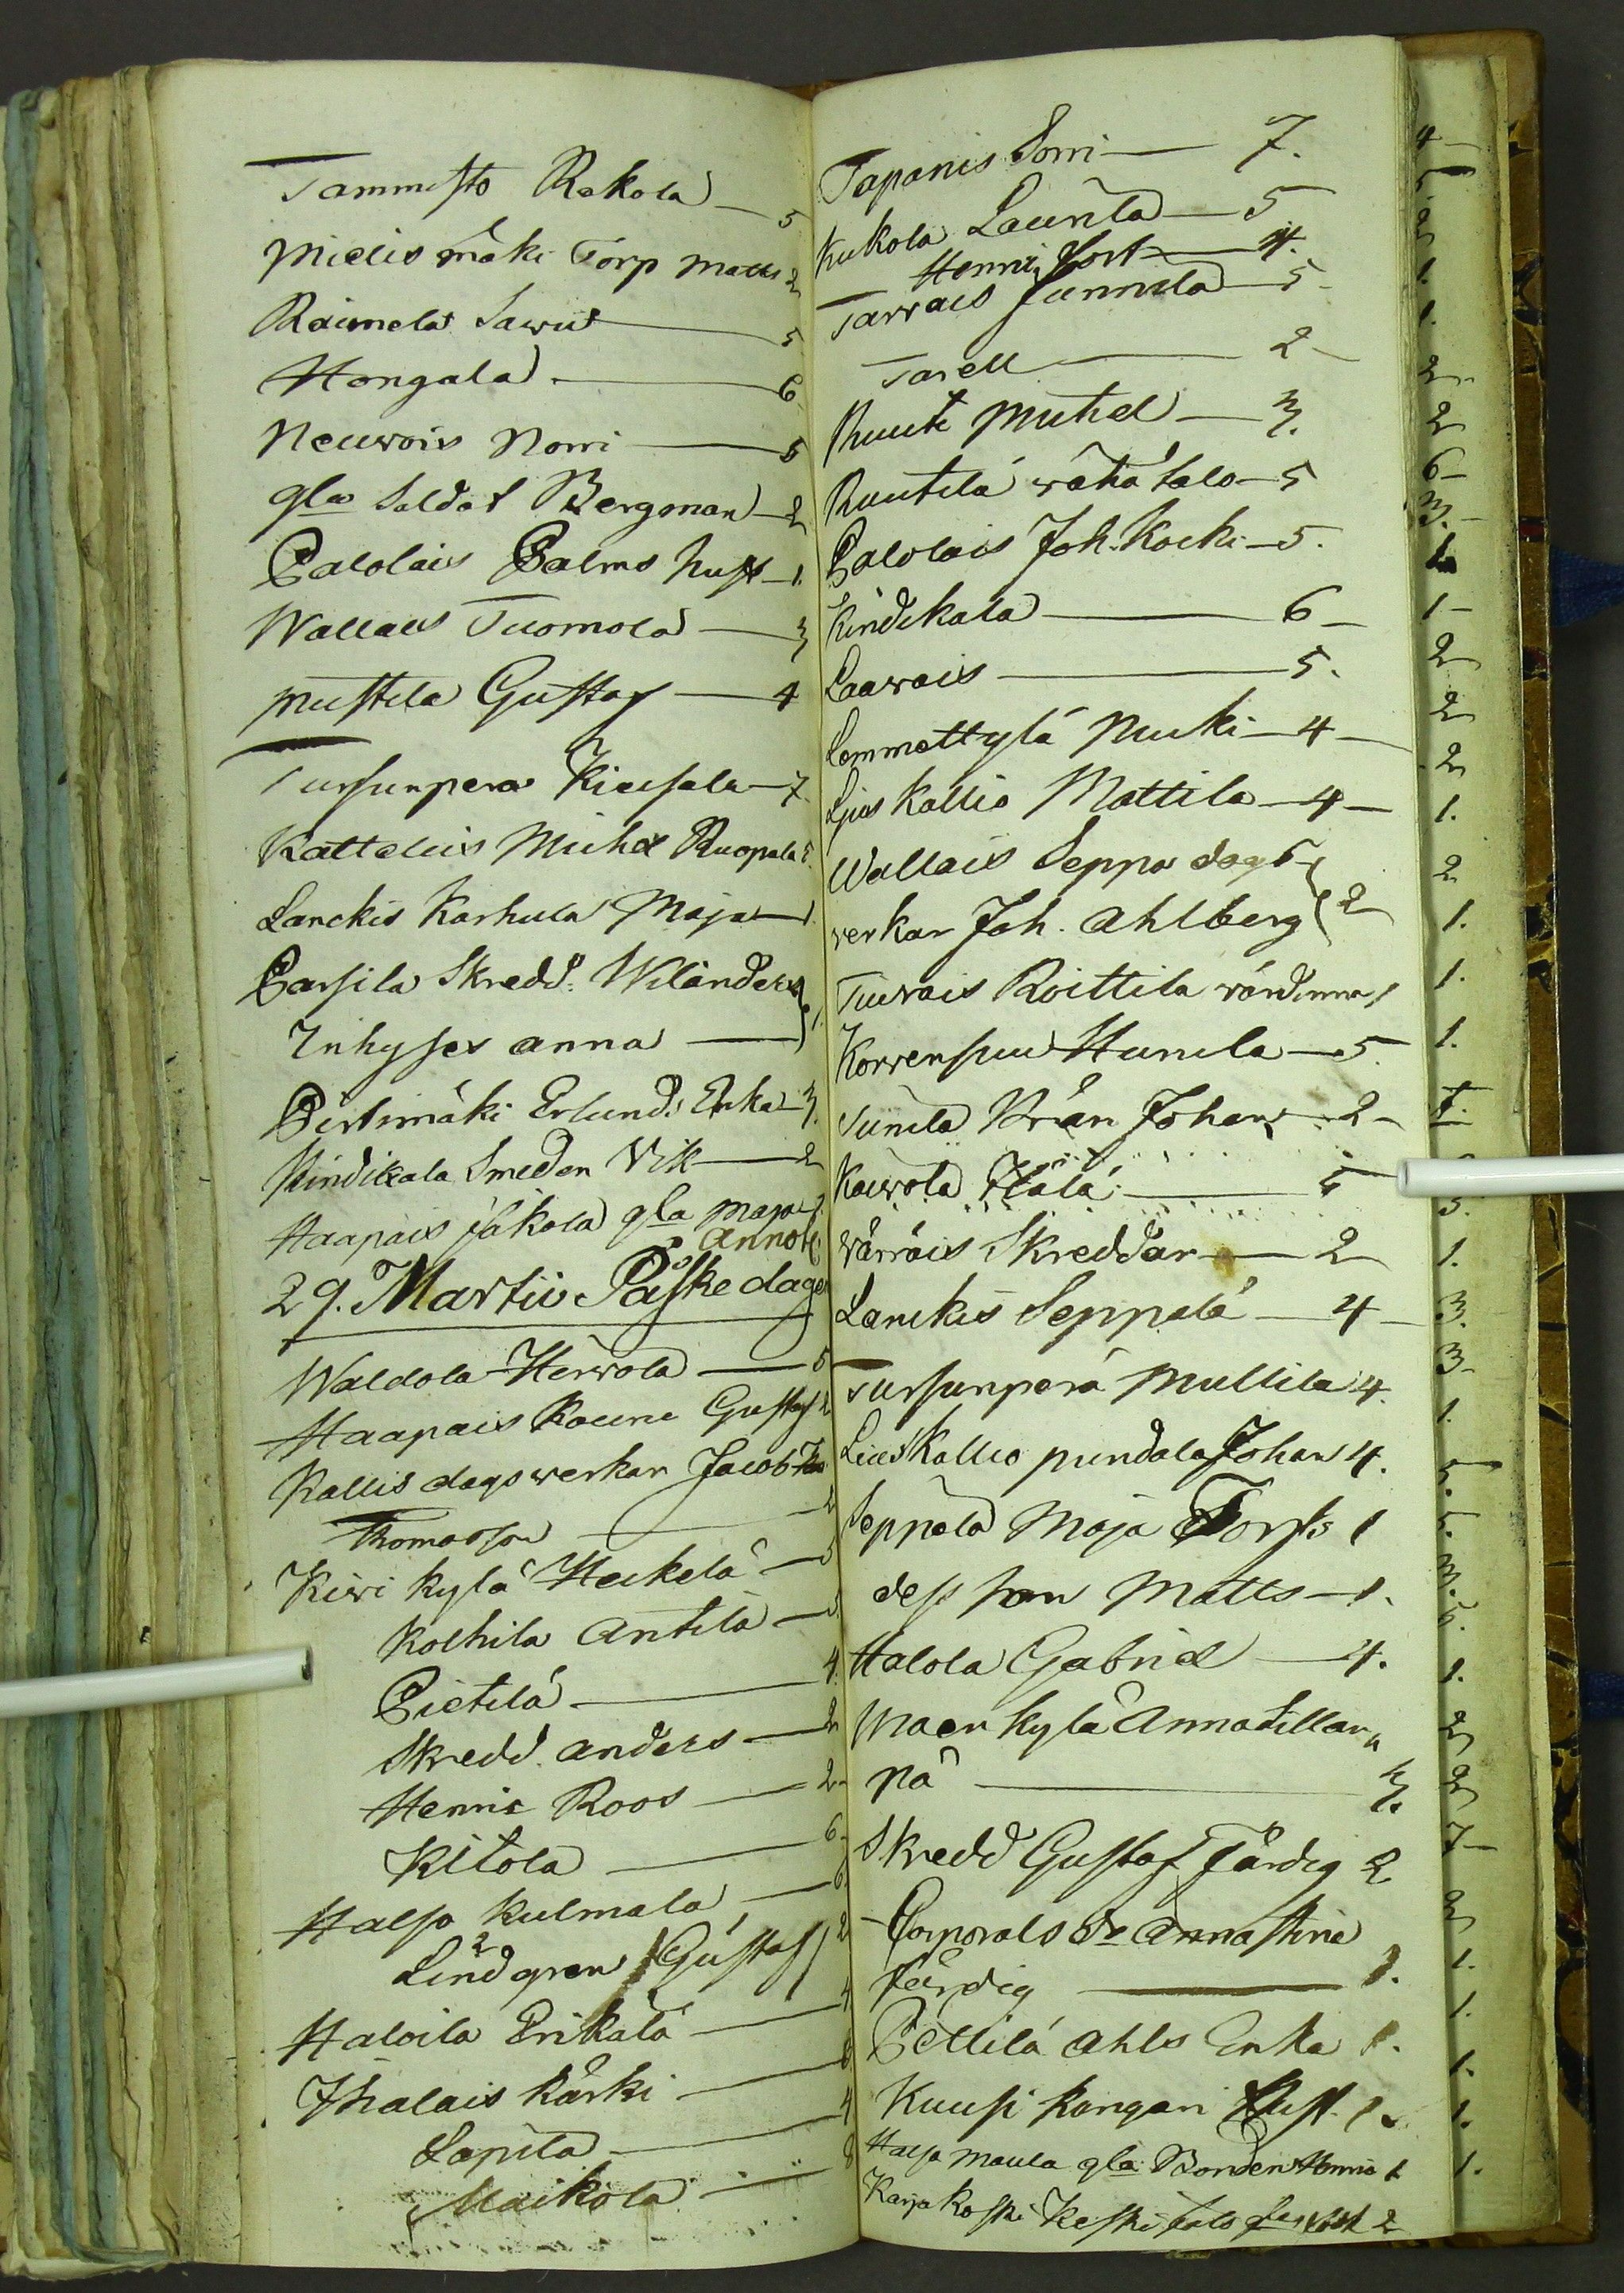 Tammisto Rekola — 5
Mielismäki Torp Matts 2
Raimela Sawu — 5
Hongala — 6
Neuvois Norri — 5
gla Soldat Bergman — 2
Palolais Palms hust — 1.
Wallais Tuomola — 3
Mustila Gustaf — 4
Tursunpera Kiusala — 7.
Kattelus Michel Ruopala
Lanckis Karhula Maja — 1
Parsila Skredd. Wilanders
Inhyses Anna — 1.
Pertimäki Erlunds Enka — 3.
Kindikala Smeden Vik — 2
Haapais Jakola gla Maja
Annot
29. Martii Påskedagen
Waldola Herrola — 5
Haapais Kauni Gustaf 2
Kallis dagsverkar Jacob
Thomasson — 2
Kiwi kylä Heikelä — 5
Kolhila Antila — 5
Pietilä — 4.
Skredd. Anders — 2
Henric Roos — 2
Kitola — 6
Halso Kulmala — 6
Lindgren Gustaf 2
Haloila Erikala — 4
Ihalais Kärki — 6
Lapila — 4
Maikola — 8
Tapanis Sorri — 7.
Kukola Launla — 5
Henric Fort — 4.
Tarvais Junnila — 5
Tarell — 2
Ruuti Michel — 3.
Ruutila wähä talo — 5
Palolais Joh. Koeki — 5.
Kindikala — 6
Laawais — 5.
Lemmettylä Muki — 4
Ljus Kallio Mattila — 4
Wallais Seppa dags
verkar Joh. Ahlberg 2
Tuvais Roittila värdinna 1
Korvensuu Hunila — 5.
Junila Krän Johan — 2
Kauvola Ilälä — 5
Värräis Skreddar — 2
Lanckis Seppälä — 4
Tursunperä Mullila 4.
Lius Kallio pundala Johan 4.
Seppälä Maja Torss 1
dess son Matts — 1.
Halola Gabriel — 4.
Maen kylä
på — 3.
Skredd Gustaf Färdig 2
Corporals dr Annastina
Färdig — 1.
Pettilä Ahls Enka 1.
Kuusi kangari Hust. 1.
Halso Maula gla Bonden Henric 1
Karjakoski Keskitalo 2
4
5
2
1.
1.
2
2
6
3.
1
1
2
2
2
1.
2
1.
1.
1.
1.
5.
1.
3.
3.
1.
5.
5.
3.
5.
1.
2
2
7
2
1.
1.
1.
1.
1.